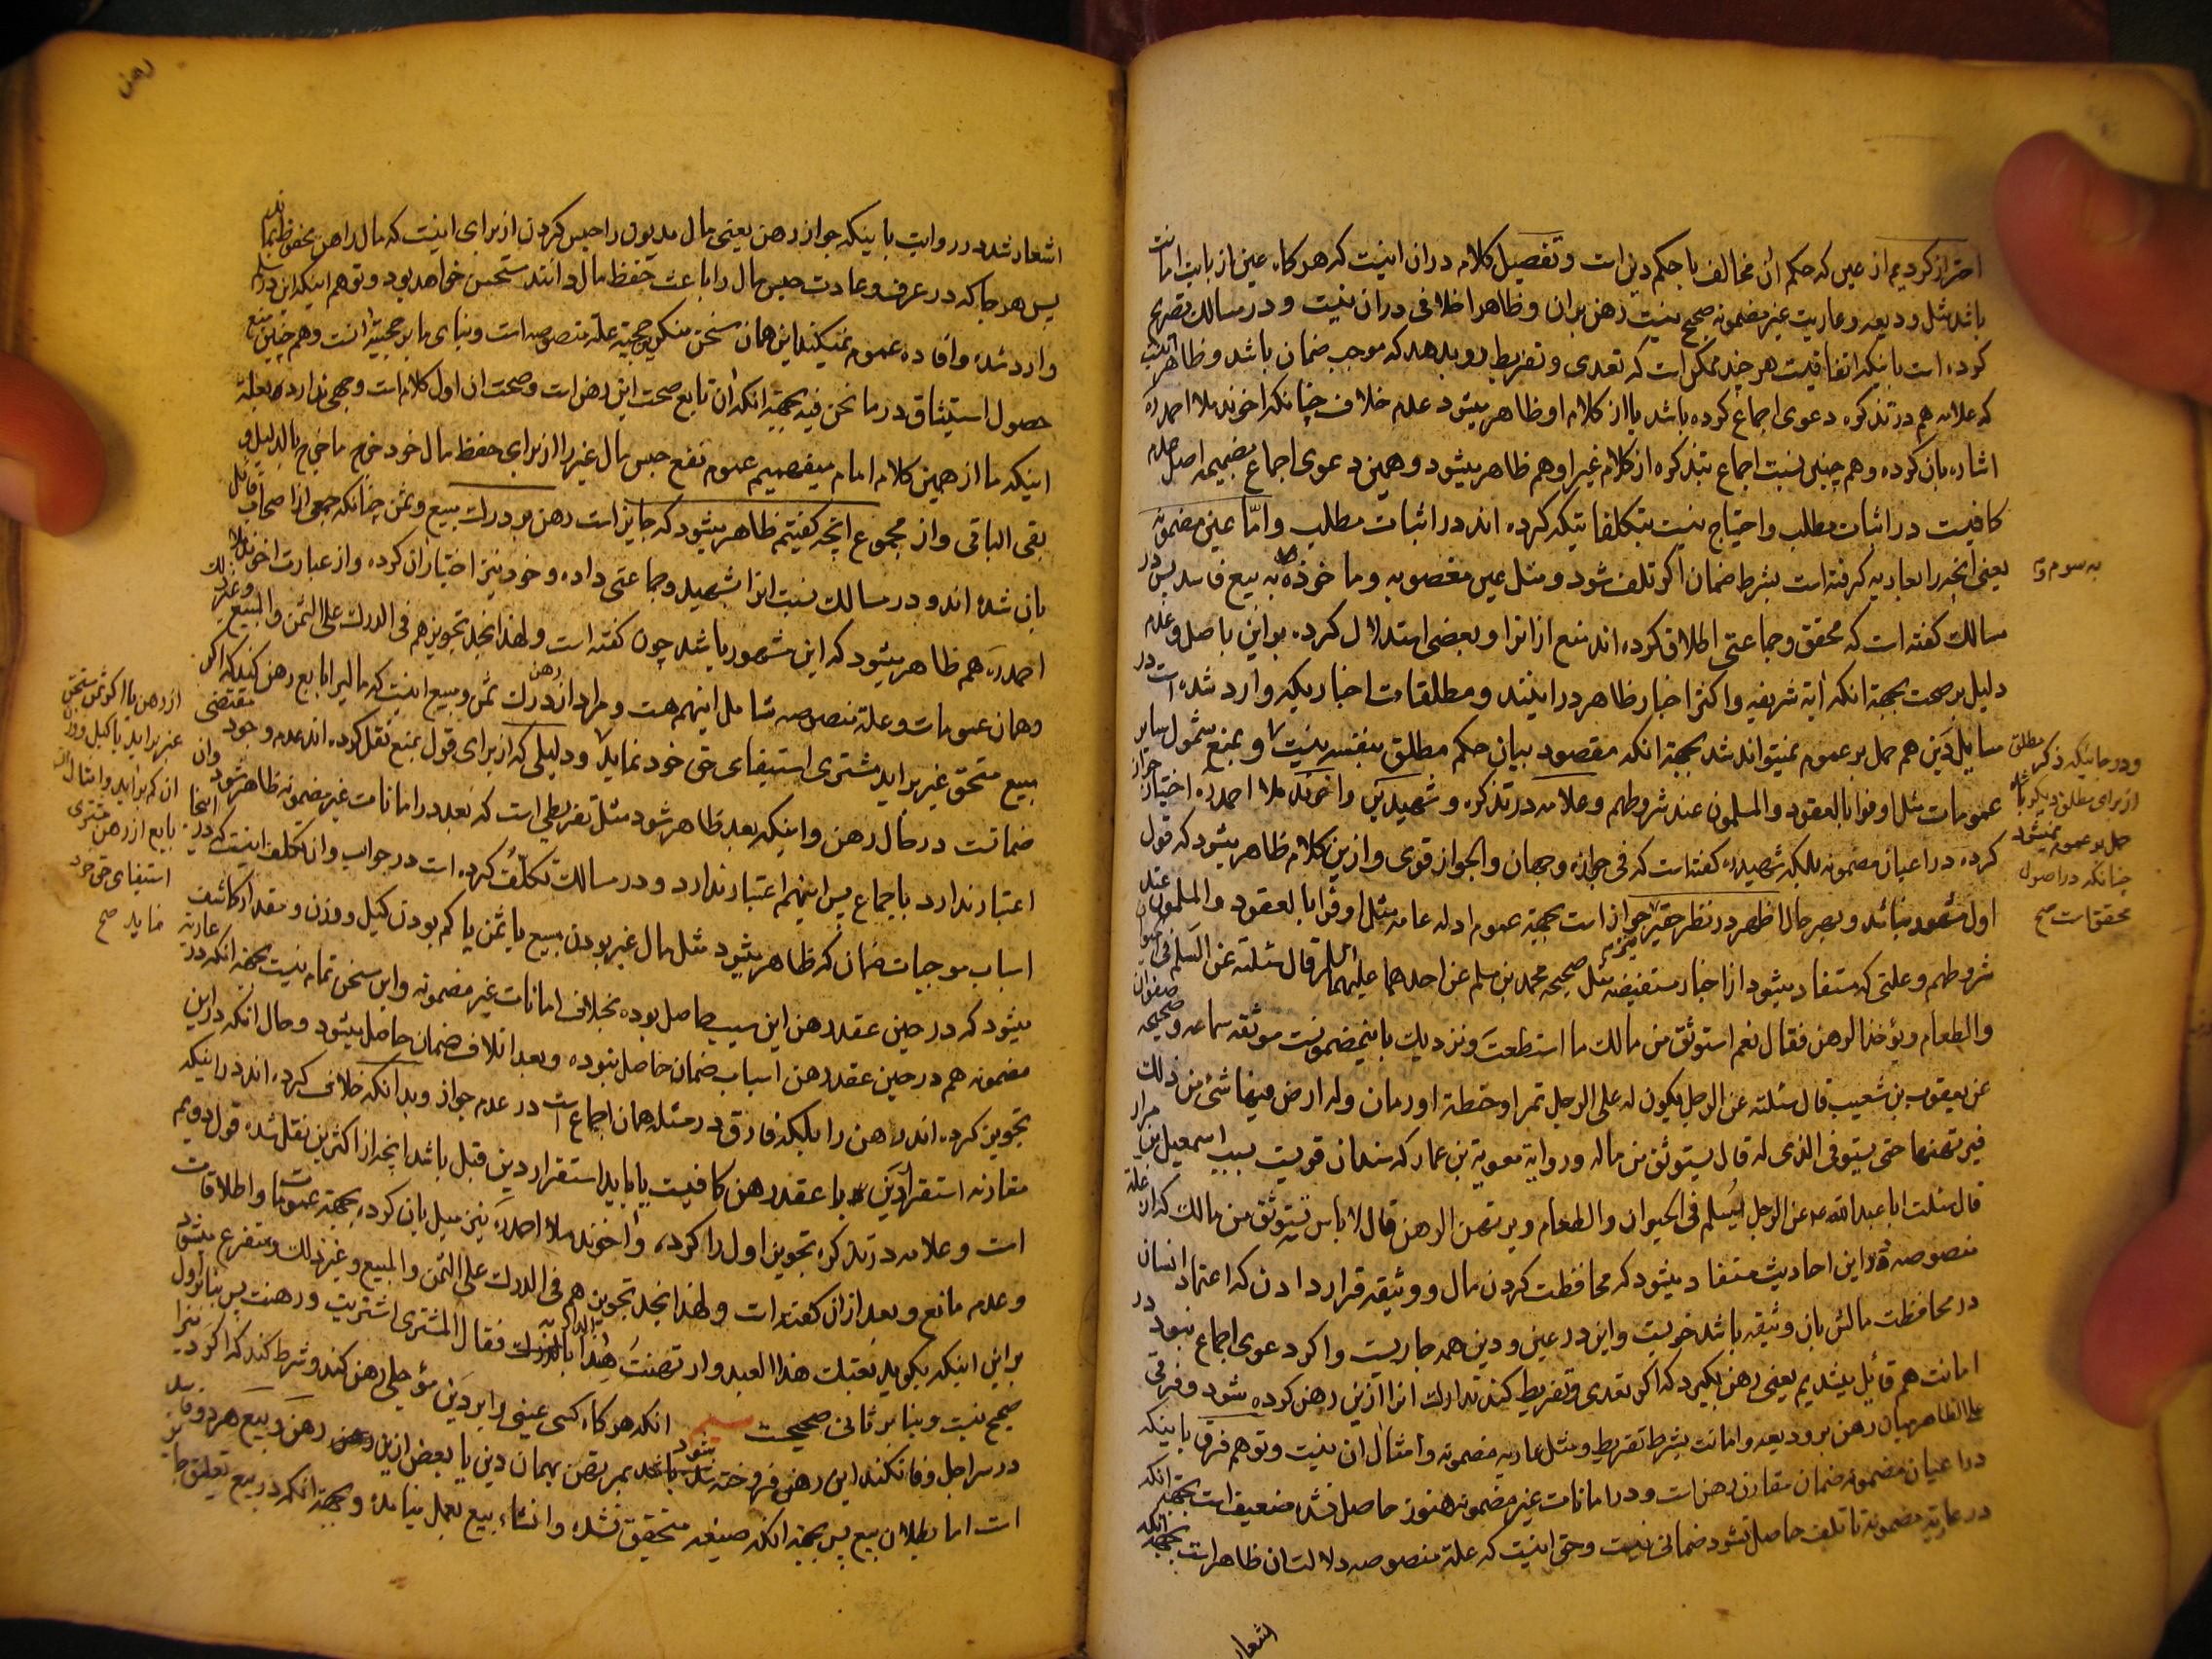 احتراز کردیم از عین که حکم آن مخالف با حکم دین است و تفصیل کلام در ان اینست که هر کاه عین از بابت امانت
باشد مثل ودیعه و عاریت غیر مضمونه صحیح نیست رهن بر ان و ظاهرا خلافی در ان نیست و در مسالک تصریح
کرده است باینکه اتفاقیست هر چند ممکن است که تعدی و تفریط رو بدهد که موجب ضمان باشد و ظاهر اینست
که علامه هم در تذکره دعوی اجماع کرده باشد یا از کلام او ظاهر میشود عدم خلاف چنانکه اخوند ملا احمد ره
اشاره بان کرده و هم چنین نسبت اجماع بتذکره از کلام غیر او هم ظاهر میشود و همین دعوی اجماع بضمیمه اصل عدم
کافیست در اثبات مطلب و احتیاج نیست بتکلفاتیکه کرده اند در اثبات مطلب و امّا عین مضمونه
یعنی انچه را بعاریه کرفته است بشرط ضمان اکر تلف شود و مثل عین مغصوبه و ماخوذه به بیع فاسد پس در
به سوم و
مسالک کفته است که محقق و جماعتی اطلاق کرده اند منع از انرا و بعضی استدلال کرده بر این باصل و عدم
دلیل بر صحت بجهة انکه آیه شریفه و اکثر اخبار ظاهر در اینند و مطلقات اخباریکه وارد شده است در
مسایل دَین هم حمل بر عموم نمیتواند شد بجهة انکه مقصود بیان حکم مطلق بنفسه نیست و بمنع شمول سایر
عمومات مثل اوفوا بالعقود و المسلمون عند شروطهم و علامه در تذکره و شهیدین و اخوند ملا احمد ره اختیار جواز
کرده در اعیان مضمونه بلکه شهید ره کفته است که فی جوازه وجهان و الجواز قوی و از این کلام ظاهر میشود که قول
اول مشهور نباشد و بهر حال اظهر در نظر حقیر جواز است بجهة عموم ادله عامه مثل اوفوا بالعقود و المسلمون عند
شروطهم و علتی که مستفاد میشود از اخبار مستفیضه مثل صحیحه محمد بن مسلم عن احدهما علیهما السلم قال سئلته عن السلم فی الحیوان
و الطعام و یؤخذ الرهن فقال نعم استوثق من مالک ما استطعت و نزدیک باینمضمونست موثقه سماعه و صحیحه صفوان
عن یعقوب بن شعیب قال سئلته عن الرجل یکون له علی الرجل تمر او حنطة او رمان و له ارض فیها شئ من ذلک
فیرتهنها حتی یستوفی الذی له قال یستوثق من ماله و روایة معویة بن عمار که سندان قویست بسبب اسمعیل بن مرار
قال سئلت ابا عبد الله ع عن الرجل یُسلم فی الحیوان و الطعام و یرتهن الرهن قال لا باس تستوثق من مالک که از علة
منصوصه در این احادیث مستفاد میشود که محافظت کردن مال و وثیقه قرار دادن که اعتماد انسان
در محافظت مالش بان وثیقه باشد خوبست و این در عین و دین همه جاریست و اکر دعوی اجماع نبود در
امانت هم قائل میشدیم یعنی رهن بکیرد که اکر تعدی و تفریط کند تدارک انرا از این رهن کرده شود و فرقی
علی الظاهر میان رهن بر ودیعه و امانت بشرط تفریط و مثل عاریه مضمونه و امثال ان نیست و توهم فرق باینکه
در اعیان مضمونه ضمان مقارن رهن است و در امانات غیر مضمونه هنوز حاصل نشده ضعیف است بجهة انکه
در عاریه مضمونه تا تلف حاصل نشود ضمانی نیست و حق اینست که علة منصوصه دلالتان ظاهر است بجهة انکه
و در جائیکه ذکر مطلق
از برای مطلق دیگر باشد
حمل بر عموم نمیشود
چنانکه در اصول
محقق است صح
اشعار
رهن
اشعار شده در روایت باینکه جواز رهن یعنی مال مدیون را حبس کردن از برای اینست که مال راهن محفوظ بماند
پس هر جا که در عرف و عادت حبس مال را باعث حفظ مال دانند مستحسن خواهد بود و توهم اینکه این در سلم
وارد شده و افاده عموم نمیکند این همان سخن منکرین حجیة علة منصوصه است و بنای ما بر حجیة آنست و هم چنین منع
حصول استیثاق در ما نحن فیه بجهة انکه آن تابع صحت این رهن است و صحت ان اول کلام است وجهی ندارد بعلة
اینکه ما از همین کلام امام میفهمیم عموم نفع حبس مال غیر را از برای حفظ مال خود خرج ما خرج بالدلیل و
بقی الباقی و از مجموع انچه کفتیم ظاهر میشود که جایز است رهن بر درک مبیع و ثمن چنانکه جمعی از اصحاب قائل
بان شده اند و در مسالک نسبت انرا بشهید و جماعتی داده و خود نیز اختیار ان کرده و از عبارت اخوند ملا
احمد ره هم ظاهر میشود که این مشهور باشد چون کفته است و لهذا نجد تجویزهم فی الدرک علی الثمن و المبیع و غیر ذلک
و همان عمومات و علة منصوصه شامل اینهم هست و مراد از رهن درک ثمن و مبیع اینست که مالیرا بایع رهن کند که اکر
مبیع مستحق غیر براید مشتری استیفای حق خود نماید و دلیلی که از برای قول بمنع نقل کرده اند عدم وجود مقتضی
ضمانت در حال رهن و اینکه بعد ظاهر شود مثل تفریطی است که بعد در امانات غیر مضمونه ظاهر شود و ان
اعتبار ندارد باجماع پس اینهم اعتبار ندارد و در مسالک تکلّف کرده است در جواب و ان تکلف اینست که در اینجا
اسباب موجبات ضمان که ظاهر میشود مثل مال غیر بودن مبیع یا ثمن یا کم بودن کیل و وزن و مقدار کاشف
میشود که در حین عقد رهن این سبب حاصل بوده بخلاف امانات غیر مضمونه و این سخن تمام نیست بجهة انکه در عاریه
مضمونه هم در حین عقد رهن اسباب ضمان حاصل نبوده و بعد اتلاف ضمان حاصل میشود و حال انکه در این
تجویز کرده اند رهن را بلکه فارق در مسئله همان اجماع است در عدم جواز و بدانکه خلاف کرده اند در اینکه
مقارنه استقرار دَین با عقد رهن کافیست یا باید استقرار دین قبل باشد انچه از اکثرین نقل شده قول دویم
است و علامه در تذکره تجویز اول را کرده، و اخوند ملا احمد ره نیز میل بان کرده بجهة عمومات و اطلاقات
و عدم مانع و بعد از ان کفته است و لهذا نجد تجویزهم فی الدرک علی الثمن و المبیع و غیر ذلک و متفرع میشود
بر این اینکه بکوید بعتک هذا العبد و ارتهنت هذا فقال المشتری اشتریت و رهنت پس بنا بر اول
صحیح نیست و بنا بر ثانی صحیحست انکه هر کاه کسی عینی را بر دَین مؤجلی رهن کند و شرط کند که اکر دین را
در سر اجل وفا نکند این رهن فروخته شده باشد بمرتهن بهمان دین یا بعض از این رهن و بیع هر دو فاسد
است اما بطلان بیع پس بجهة انکه صیغه متحقق نشده و انشاء بیع بعمل نیامده و بجهة انکه در بیع تعلیق جایز
از رهن یا اکر ثمن مستحق
غیر براید یا کیل و وزن
ان کم براید و امثال ان
بایع از رهن مشتری
استیفای حق خود
نماید صح